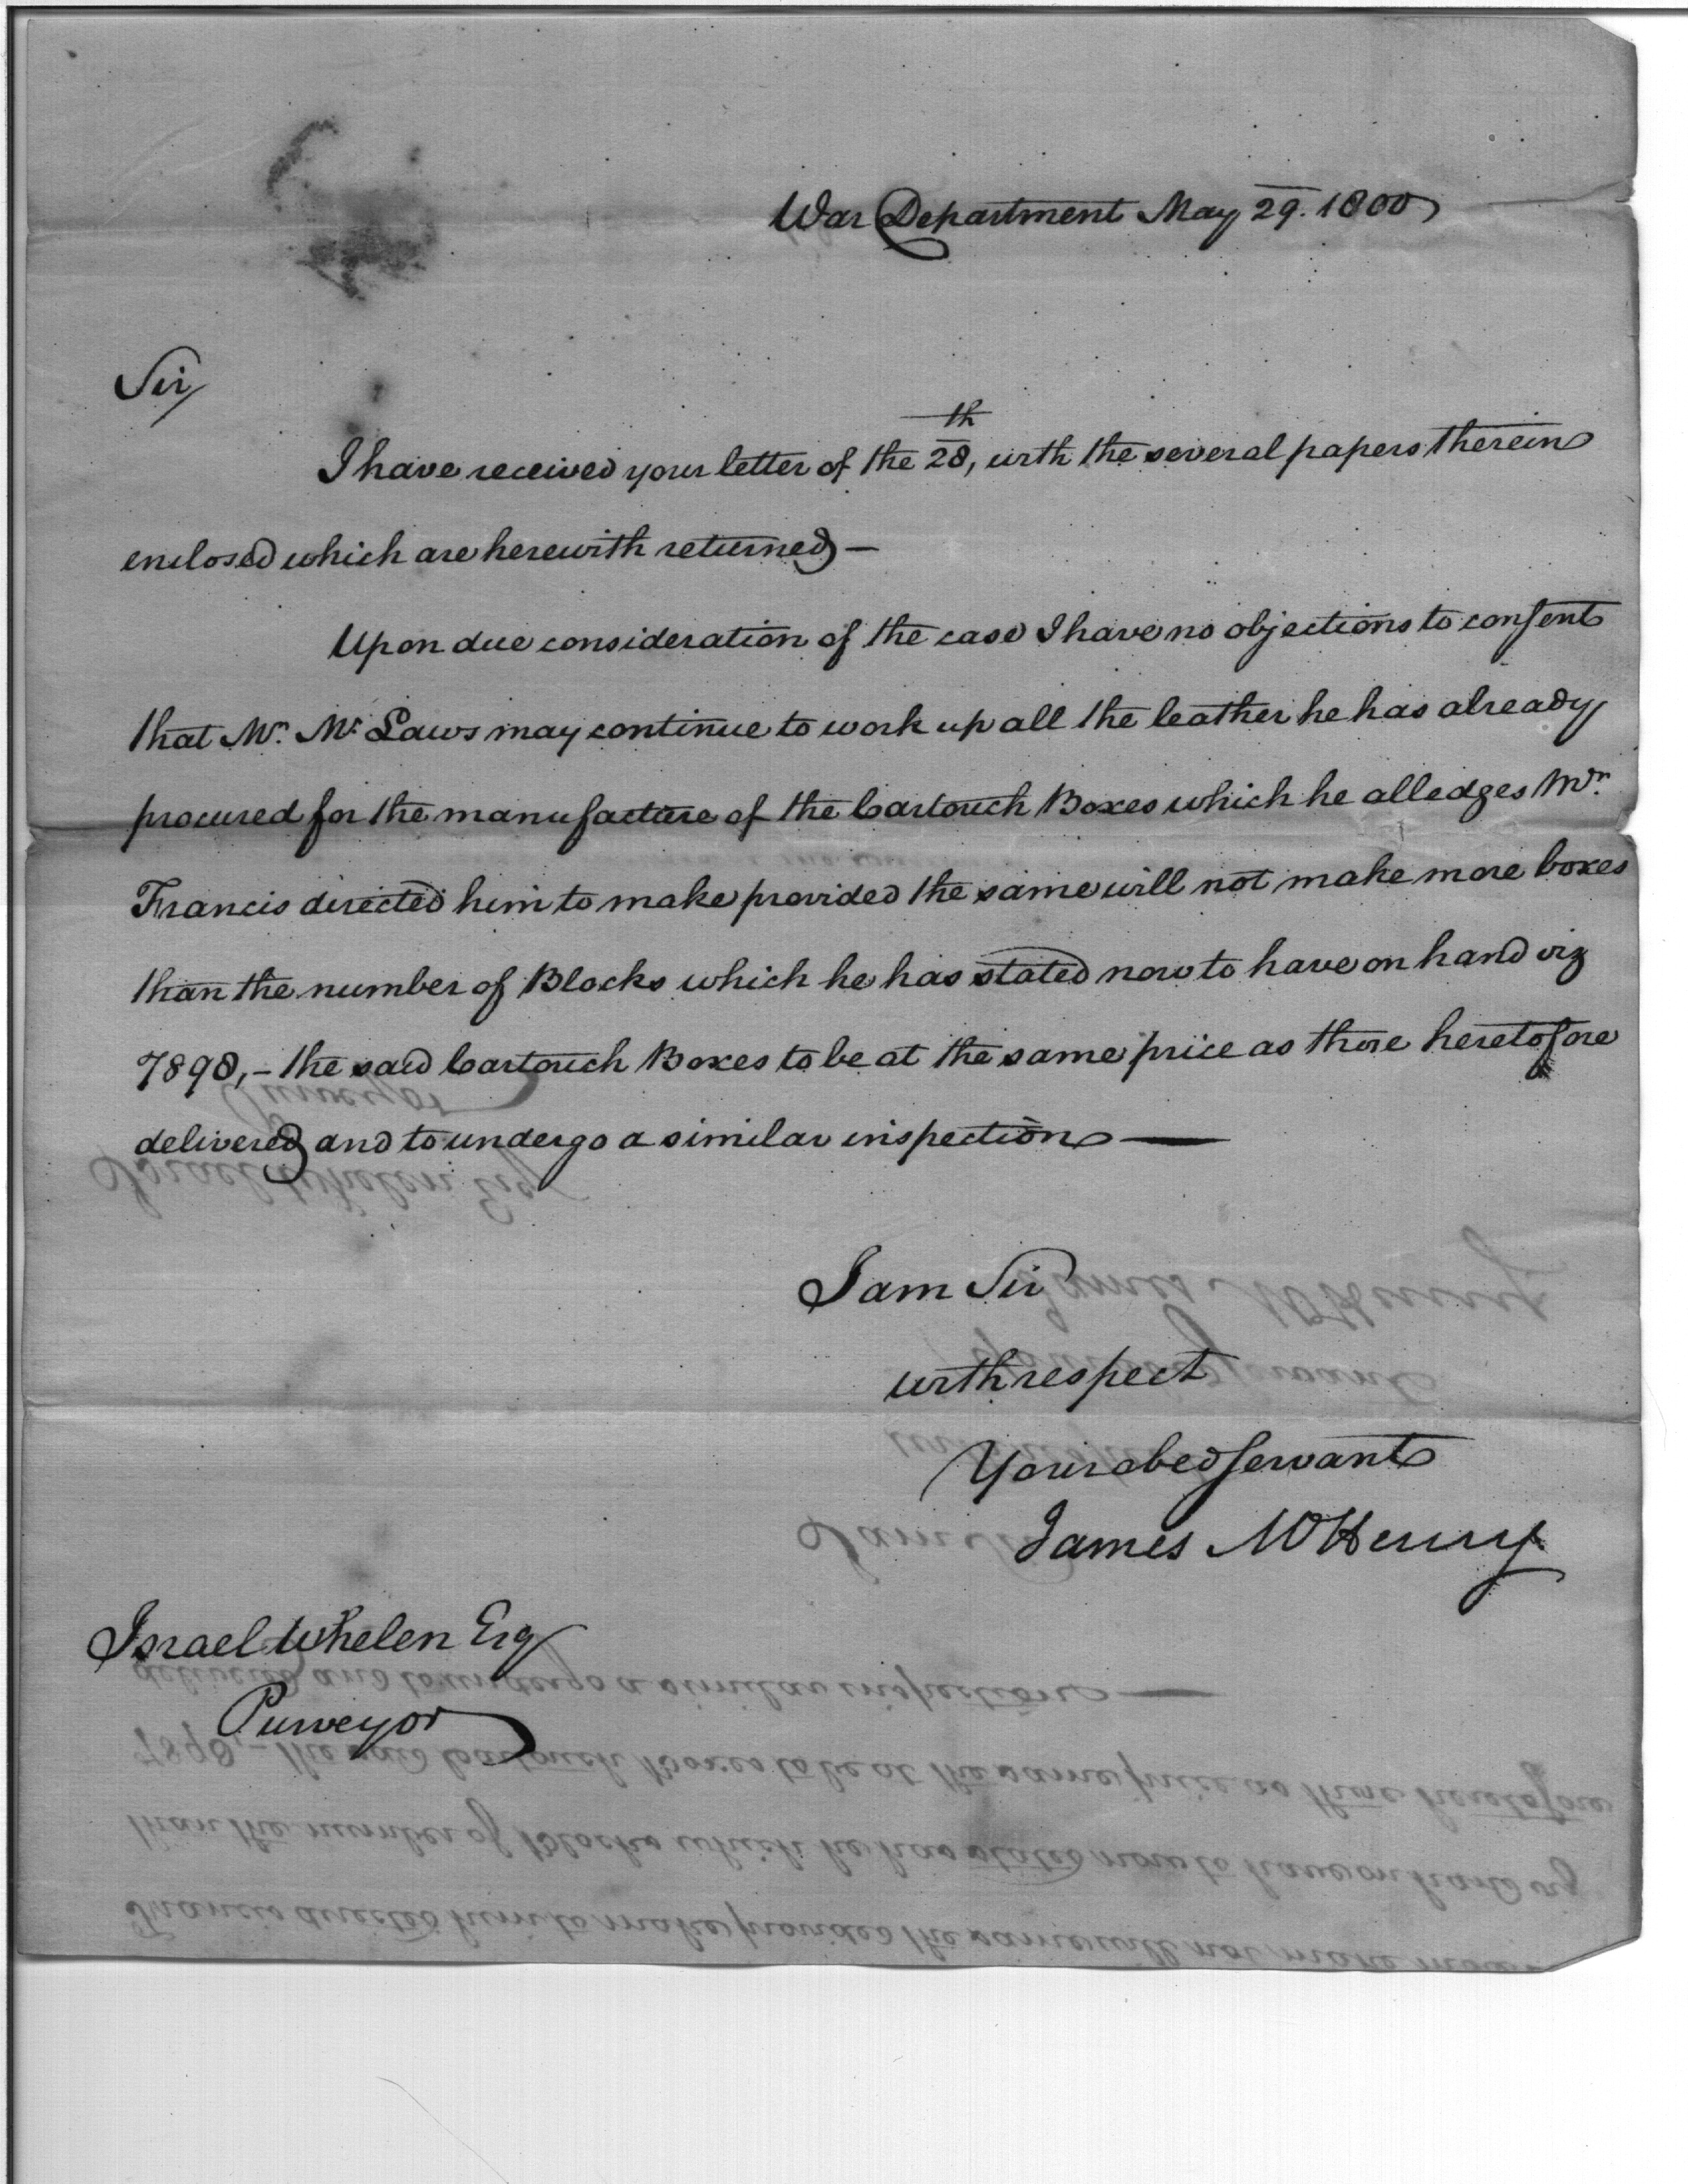 War Department May 29. 1800
Sir,
I have received your letter of the 28th, with the several papers therein
enclosed which are herewith returned —
Upon due consideration of the case I have no objections to consent
that Mr. Mc Laws may continue to work up all the leather he has already
procured for the manufacture of the Cartouch Boxes which he alledges Mr.
Francis directed him to make provided the same will not make more boxes
than the number of Blocks which he has stated now to have on hand viz
7898, – the said Cartouch Boxes to be at the same price as those heretofore
delivered and to undergo a similar inspection —
I am Sir
with respect
Your obed servant
James McHenry
Israel Whelen Esq
Purveyor